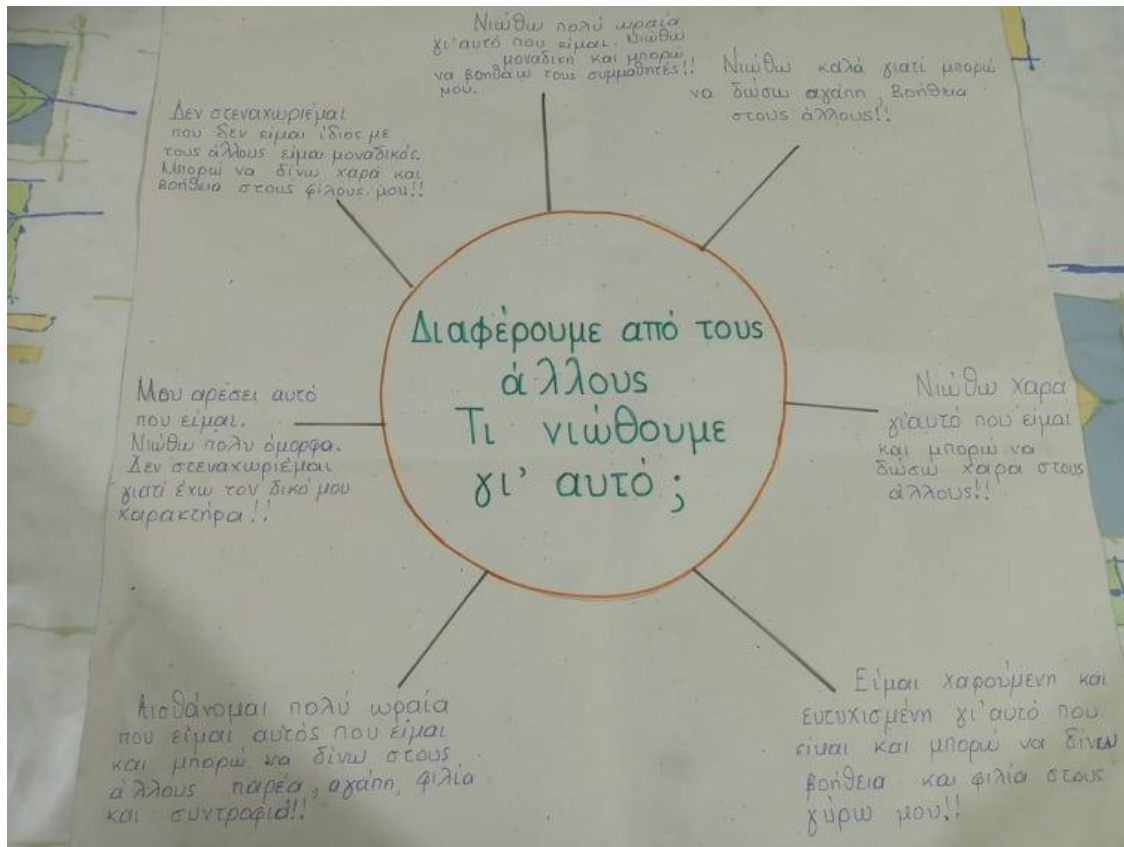 Διαφέρουμε από τους
άλλους
Τι νιώθουμε
γι' αυτό ;
Νιώθω πολύ ωραία
γι'αυτό που είμαι. Νιώθω
μοναδική και μπορώ
να βοηθάω τους συμμαθητές!!
μου.
Νιώθω καλά γιατί μπορώ
να δώσω αγάπη, βοήθεια
στους άλλους!!
Νιώθω χαρά
γι'αυτό που είμαι
και μπορώ να
δώσω χαρά στους
άλλους!!
Είμαι χαρούμενη και
ευτυχισμένη γι'αυτό που
είμαι και μπορώ να δίνω
βοήθεια και φιλία στους
γύρω μου!!
Αισθάνομαι πολύ ωραία
που είμαι αυτός που είμαι
και μπορώ να δίνω στους
άλλους παρέα, αγάπη, φιλία
και συντροφιά!!
Μου αρέσει αυτό
που είμαι.
Νιώθω πολύ όμορφα.
Δεν στεναχωριέμαι
γιατί έχω τον δικό μου
χαρακτήρα!!
Δεν στεναχωριέμαι
που δεν είμαι ίδιος με
τους άλλους είμαι μοναδικός.
Μπορώ να δίνω χαρά και
βοήθεια στους φίλους μου!!